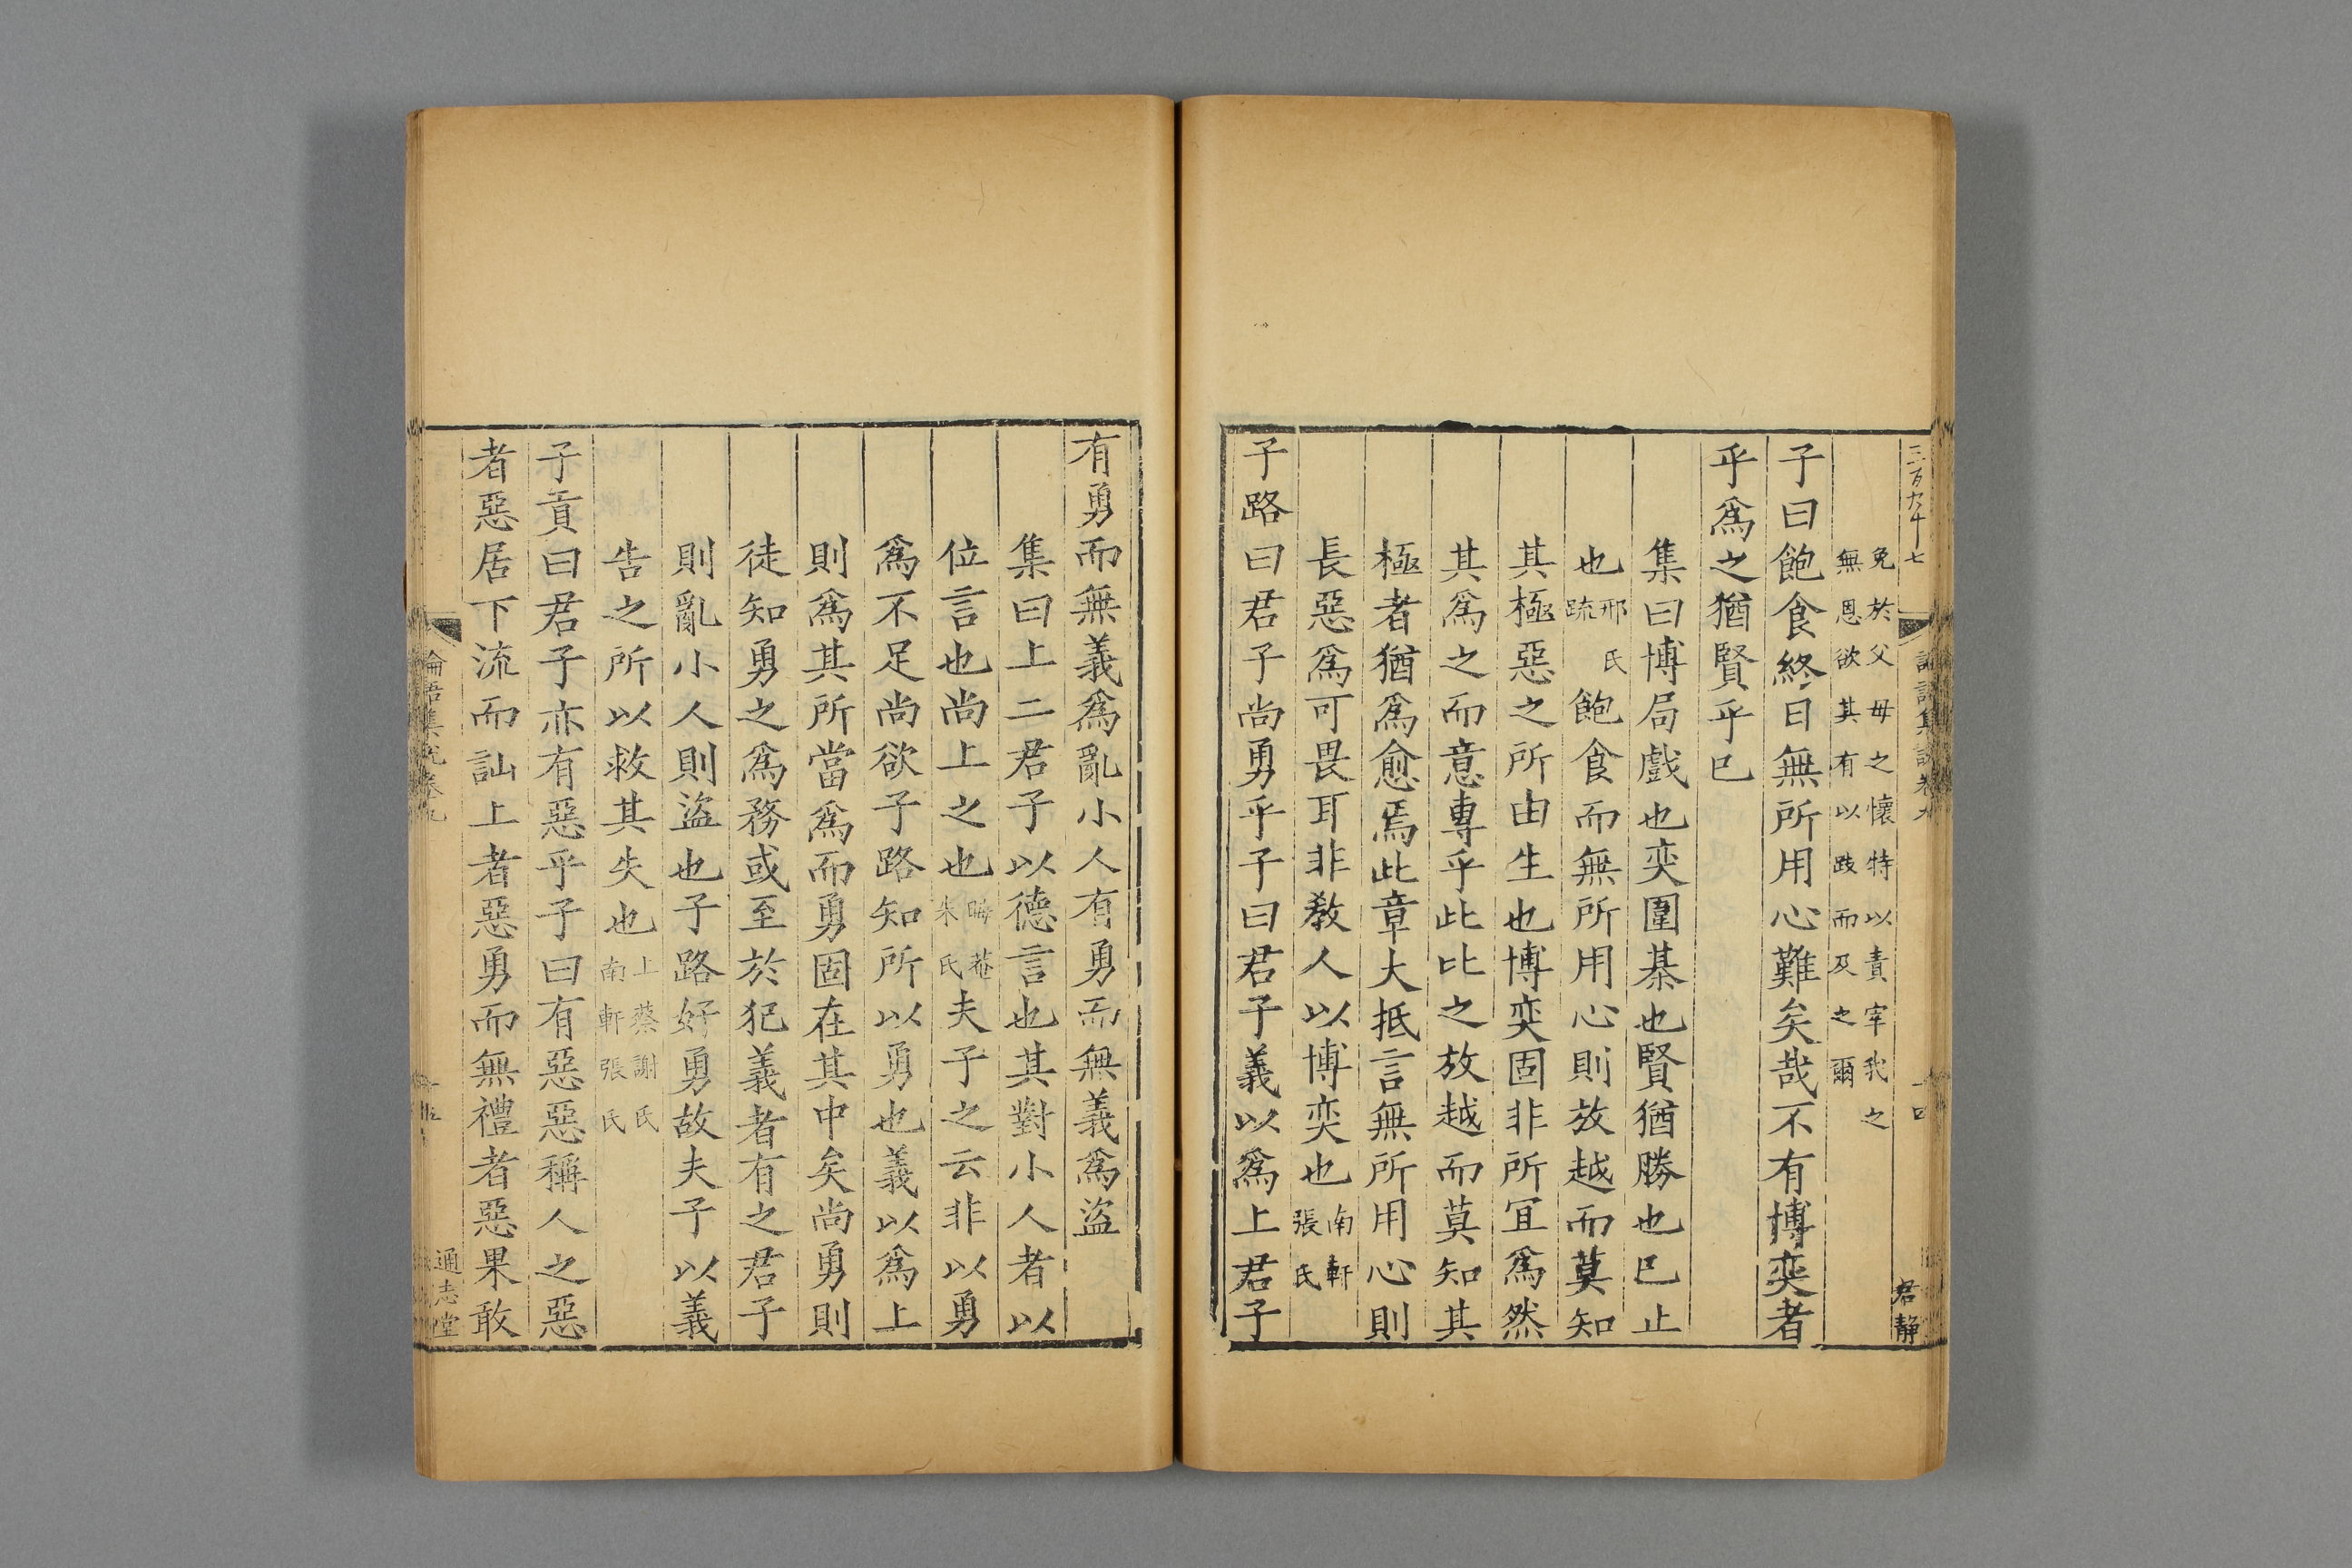 三百九十七
論語集說卷九
十四
君靜
免於父母之懷特以責宰我之
無恩欲其有以跂而及之爾
子曰飽食終日無所用心難矣哉不有博奕者
乎爲之猶賢乎已
集曰博局戲也奕圍棊也賢猶勝也已止
也邢氏疏飽食而無所用心則放越而莫知
其極惡之所由生也博奕固非所宜爲然
其爲之而意專乎此比之放越而莫知其
極者猶爲愈焉此章大抵言無所用心則
長惡爲可畏耳非敎人以博奕也南軒張氏
子路曰君子尚勇乎子曰君子義以爲上君子
有勇而無義爲亂小人有勇而無義爲盜
集曰上二君子以德言也其對小人者以
位言也尚上之也晦菴朱氏夫子之云非以勇
爲不足尚欲子路知所以勇也義以爲上
則爲其所當爲而勇固在其中矣尚勇則
徒知勇之爲務或至於犯義者有之君子
則亂小人則盜也子路好勇故夫子以義
告之所以救其失也上蔡謝氏南軒張氏
子貢曰君子亦有惡乎子曰有惡惡稱人之惡
者惡居下流而訕上者惡勇而無禮者惡果敢
論語集說卷九
十五
通志堂